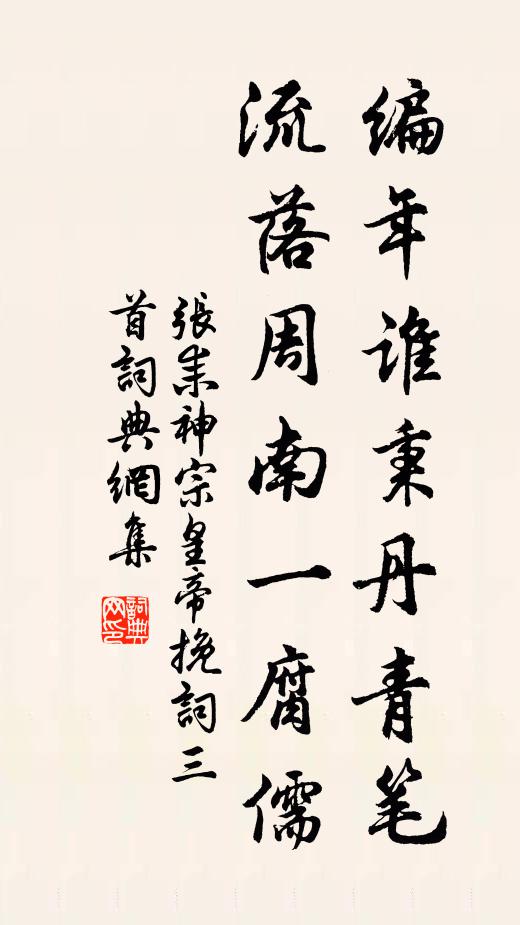 编年谁秉丹青笔
流落周南一腐儒
張耒神宗皇帝挽詞三
首詞典網集
詞典网印